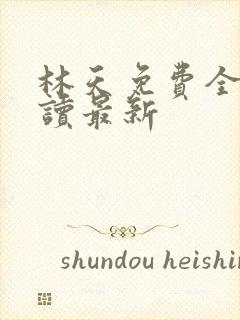 林天免費全
讀最新
shundou heishin